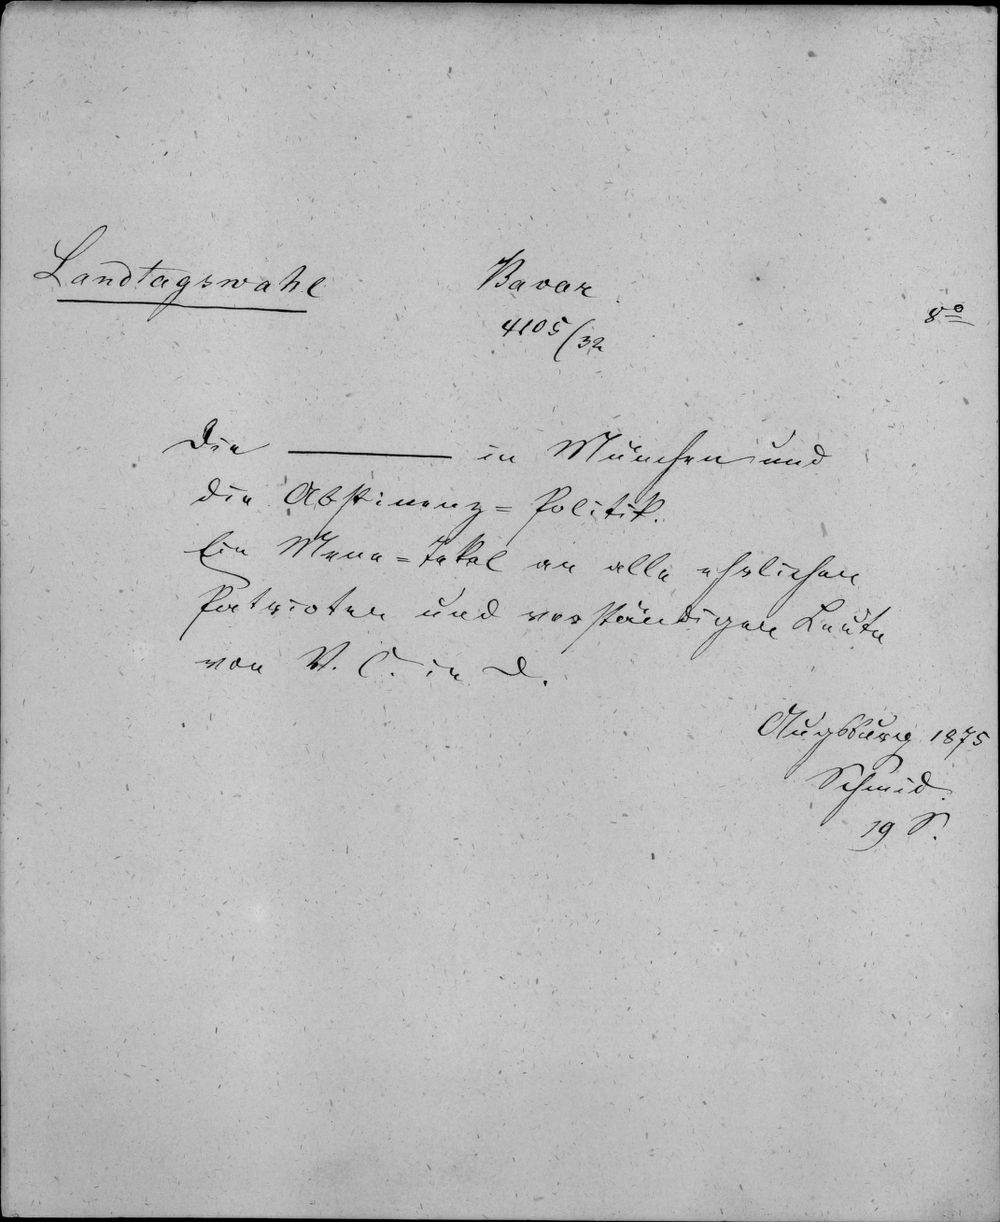 Landtagswahl
Bavar.
4105/32
8º
Die ——— in München und
die Abstinenz-Politik.
Ein Mene-Tekel an alle ehrlichen
Patrioten und verständigen Leute
von V. C. in D.
Augsburg 1875
Schmid.
19 S.